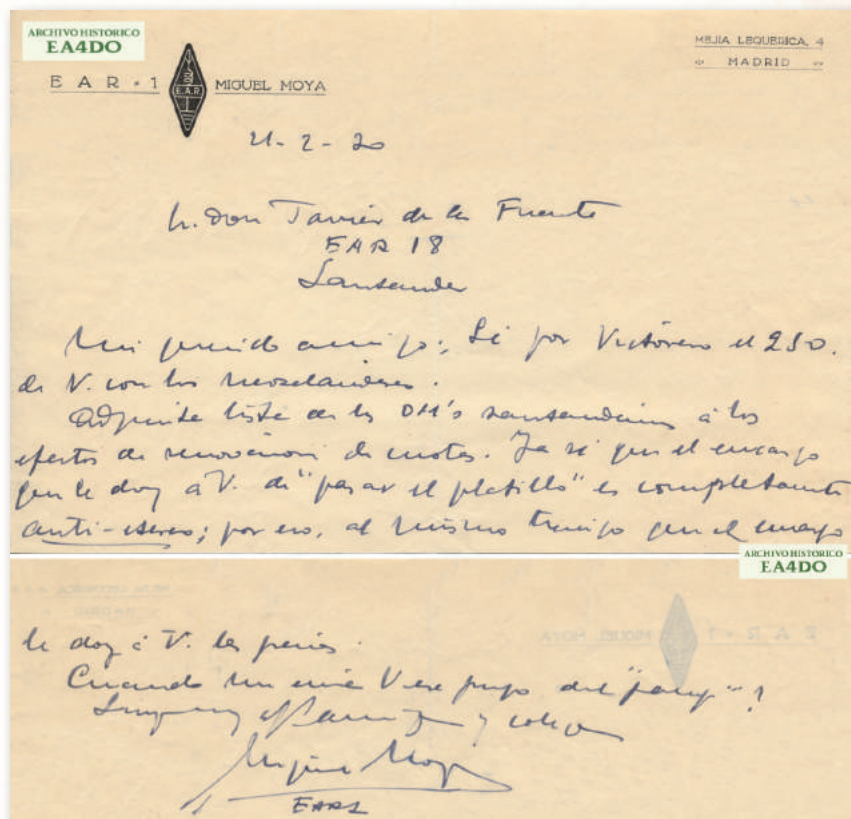 ARCHIVO HISTORICO
EA4DO
EAR-1
E.A.R.
MIGUEL MOYA
MEJIA LEQUERICA, 4
MADRID
21-2-30
Sr. Don Javier de la Fuente
EAR 18
Santander
Mi querido amigo: Sé por Victórero el QSO.
de V. con los neozelandeses.
Adjunto lista de los OM's santanderinos á los
efectos de renovación de cuotas. Ya sé que el encargo
que le doy á V. de "pasar el platillo" es completamente
anti-etereo; por eso, al mismo tiempo que el encargo
ARCHIVO HISTORICO
EA4DO
le doy á V. las gracias.
Cuando me envia V ese
amigo y colega
Miguel Moya
EAR1